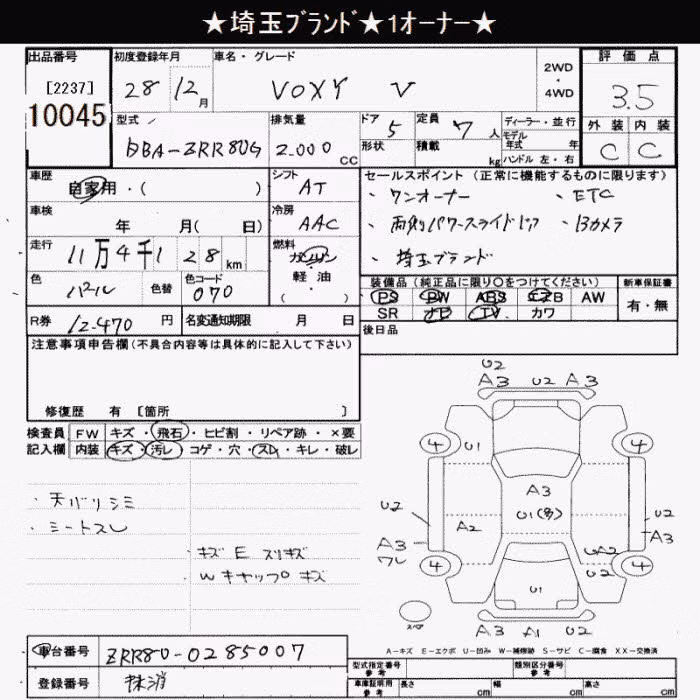 ★埼玉ﾌﾞﾗﾝﾄﾞ★1オーナー★
出品番号 初度登録年月 車名・グレード 評価点
[2237] 28 12月 VOXY V 2WD・4WD 3.5
10045
型式 排気量 ドア 5 定員 7人 ディーラー・並行 外装 内装
DBA-ZRR80G 2.000cc 形状 積載 kg モデル年式 年 C C
ハンドル 左・右
車歴 シフト セールスポイント(正常に機能するものに限ります)
自家用・( ) AT ・ワンオーナー ・ETC
車検 冷房 ・両側パワースライドドア ・Bカメラ
年 月(日) AAC
走行 燃料 ・埼玉ブランド
11万4千128km ガソリン
軽・油
・( )
色 色替 色コード 装備品(純正品に限り○をつけてください) 新車保証書
パール 070 PS PW ABS エアB AW 有・無
SR ナビ TV カワ
R券 12.470円 名変通知期限 月 日 後日品
注意事項申告欄(不具合内容等は具体的に記入して下さい)
修復歴 有 [箇所 ]
検査員 FW キズ・飛石・ヒビ割・リペア跡・×要
記入欄 内装 キズ・汚レ・コゲ・穴・スレ・キレ・破レ
・天バリシミ
・シートスレ
・キズ E スリキズ
Wキャップ キズ
U2
A3 U2 A3
4 U1 4
A3
U2 U1(多) U2
A2
A3 UA2 A3
ワレ
4 U2 4
U1
スペア
A3 A1 U2
A-キズ E-エクボ U-凹み W-補修跡 S-サビ C-腐食 XX-交換済
車台番号 ZRR80-0285007
型式指定番号 参考 類別区分番号 参考
登録番号 抹消
車庫証明用 参考 長さ cm 幅 cm 高さ cm